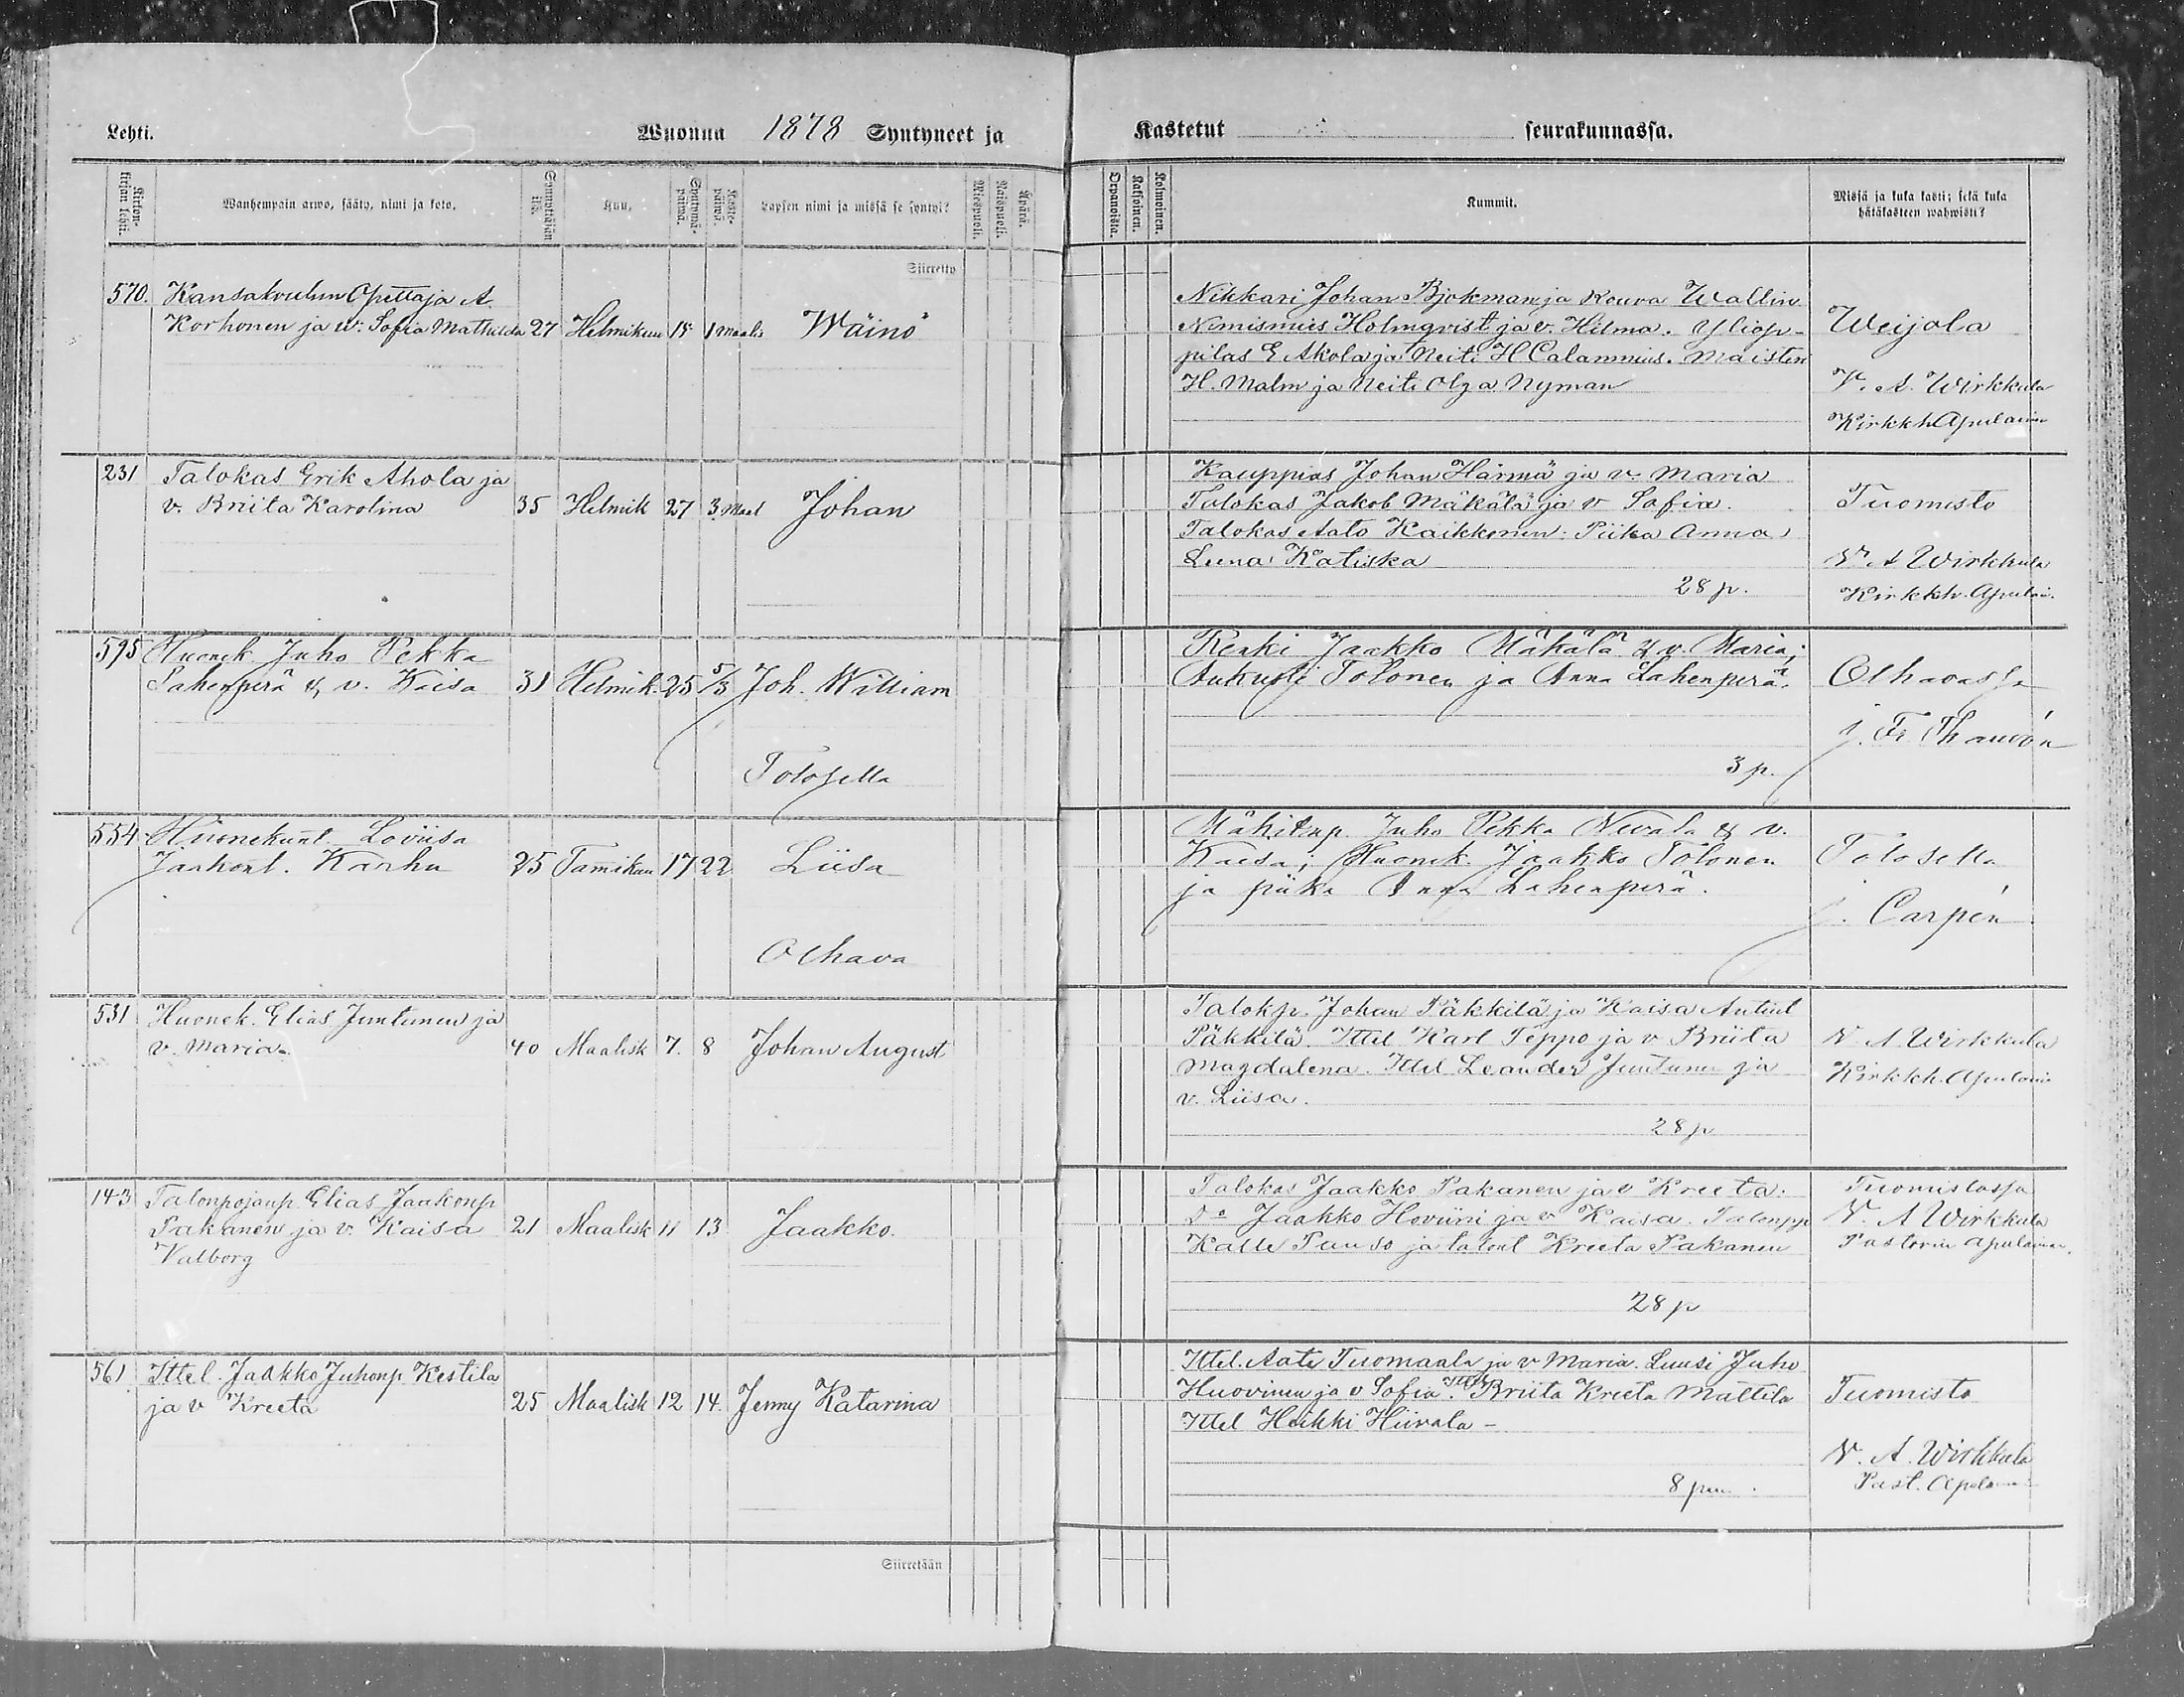 Lehti.
Wuonna 1878 Syntyneet ja
Kastetut seurakunnassa.
Kirkonkirjan lehti.
Wanhempain arwo, sääty, nimi ja koto.
Kuu.
Syntymäpäiwä.
Kastepäiwä.
Lapsen nimi ja missä se syntyi?
Miespuoli.
Naispuoli.
Äpärä.
Orpanoista.
Kaksoinen.
Kolmoinen.
Kummit.
Missä ja kuka kasti; sekä kuka
hätäkasteen wahwisti?
Siirretty
570. Kansakoulun Opettaja A.
Korhonen ja w: Sofia Mathilda 27 Helmikuu 15 1 Maalis Wäinö
Nikkari Johan Björkman ja Rouva Wallin
Nimismies Holmqvist ja v. Hilma. Yliop-
pilas E Ahola ja Neiti H Calamnius. Maisteri
H. Malm ja Neiti Olga Nyman
Weijola
V. A. Wirkkula
Kirkkh Apulainen
231 Talokas Erik Ahola ja
v. Briita Karolina 35 Helmik 27 3 Maal Johan
Kauppias Johan Härmä ja v. Maria
Talokas Jakob Mäkälä ja v Sofia.
Talokas Aato Kaikkonen: Piika Anna
Leena Katiska
28 p.
Tuomisto
V. A Wirkkula
Kirkkh. Apulai.
595 Huonek Juho Pekka
Lahenperä & v. Kaisa 31 Helmik. 25 5/3 Joh. William
Tolosella
Renki Jaakko Mäkälä & v. Maria;
Aukusti Tolonen ja Anna Lahenperä.
3 p.
Olhavassa
j. Fr. Thauvón
554 Huonekunt Loviisa
Jaakont. Karhu 25 Tamikuu 17 22 Liisa
Olhava
Mäkitup. Juho Pekka Nevala & v.
Kaisa; Huonek. Jaakko Tolonen
ja piika Anna Lahenperä.
Tolosella
j. Carpén
531 Huonek. Elias Juntunen ja
v. Maria. 40 Maalisk 7. 8 Johan August
Talokp. Johan Päkkilä ja Kaisa Antint
Päkkilä. Ittel Karl Teppo ja v Briita
Magdalena. Ittel Leander Juntunen ja
v. Liisa.
28 p
V. A. Wirkkula
Kirkkh. Apulain
143 Talonpojanp. Elias Jaakonp
Pakanen ja v. Kaisa 21 Maalisk 11 13 Jaakko.
Valborg
Talokas Jaakko Pakanen ja v Kreeta.
Do Jaakko Hoviini ja v Kaisa. Talonpp
Kalle Pauso ja talont Kreeta Pakanen
28 p
Tuomistossa
V. A Wirkkula
Pastorin apulainen.
561 Ittel. Jaakko Juhonp. Kestila
ja v Kreeta 25 Maalisk 12 14. Jenny Katarina
Ittel. Aate Tuomaala ja v Maria. Suusi Juho
Huovinen ja v Sofia. Ittell Briita Kreeta Mattila
Ittel Heikki Hiivala -
8 pen.
Tuomisto
V. A. Wirkkula
Past. Apula
Siirretään